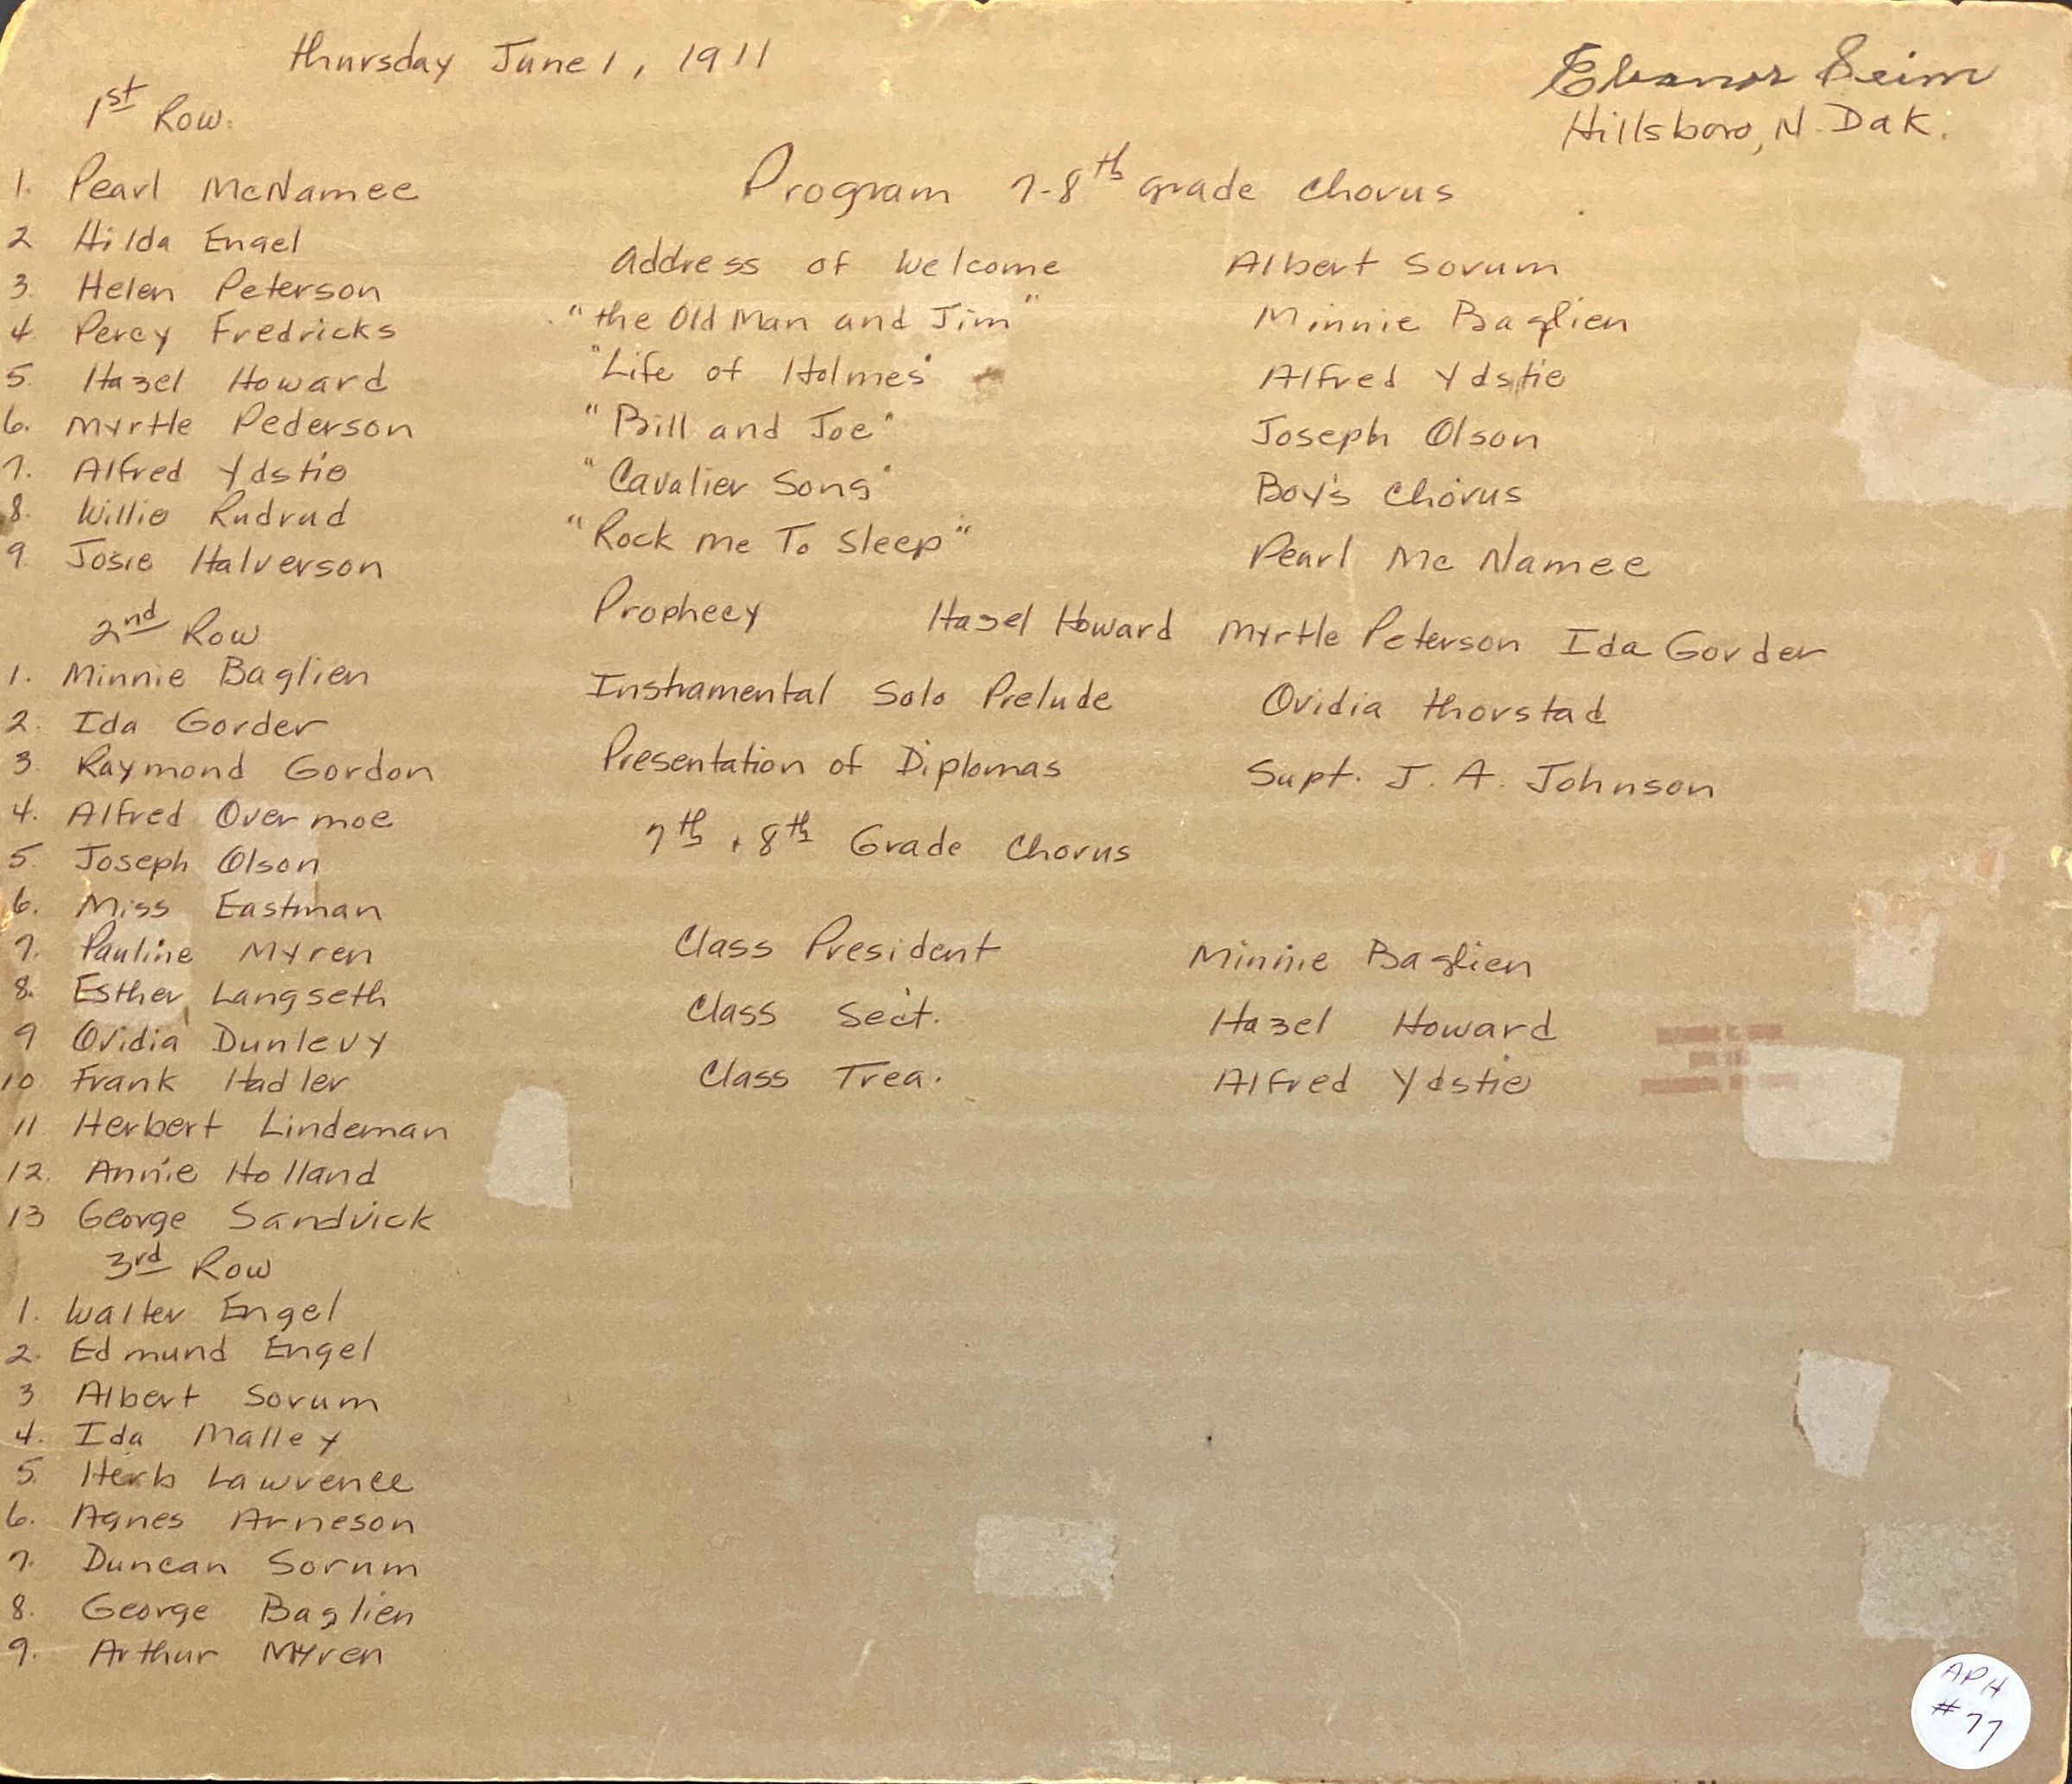 Thursday June 1, 1911
Eleanor Seim
Hillsboro, N. Dak.
1st Row.
1. Pearl McNamee
2 Hilda Engel
3. Helen Peterson
4. Percy Fredricks
5. Hazel Howard
6. Myrtle Pederson
7. Alfred Ydstie
8. Willie Rudrud
9. Josie Halverson
2nd Row
1. Minnie Baglien
2. Ida Gorder
3. Raymond Gordon
4. Alfred Overmoe
5. Joseph Olson
6. Miss Eastman
7. Pauline Myren
8. Esther Langseth
9 Ovidia Dunlevy
10 Frank Hadler
11. Herbert Lindeman
12. Annie Holland
13 George Sandvick
3rd Row
1. Walter Engel
2. Edmund Engel
3 Albert Sorum
4. Ida Malley
5. Herb Lawrence
6. Agnes Arneson
7. Duncan Sorum
8. George Baglien
9. Arthur Myren
Program 7-8th grade Chorus
Address of Welcome Albert Sorum
"the Old Man and Jim" Minnie Baglien
"Life of Holmes" Alfred Ydstie
"Bill and Joe" Joseph Olson
"Cavalier Song" Boy's Chorus
"Rock me To Sleep" Pearl Mc Namee
Prophecy Hazel Howard Myrtle Peterson Ida Gorder
Instramental Solo Prelude Ovidia Thorstad
Presentation of Diplomas Supt. J. A. Johnson
7th + 8th Grade Chorus
Class President Minnie Baglien
Class Sec't. Hazel Howard
Class Trea. Alfred Ydstie
APH
#77